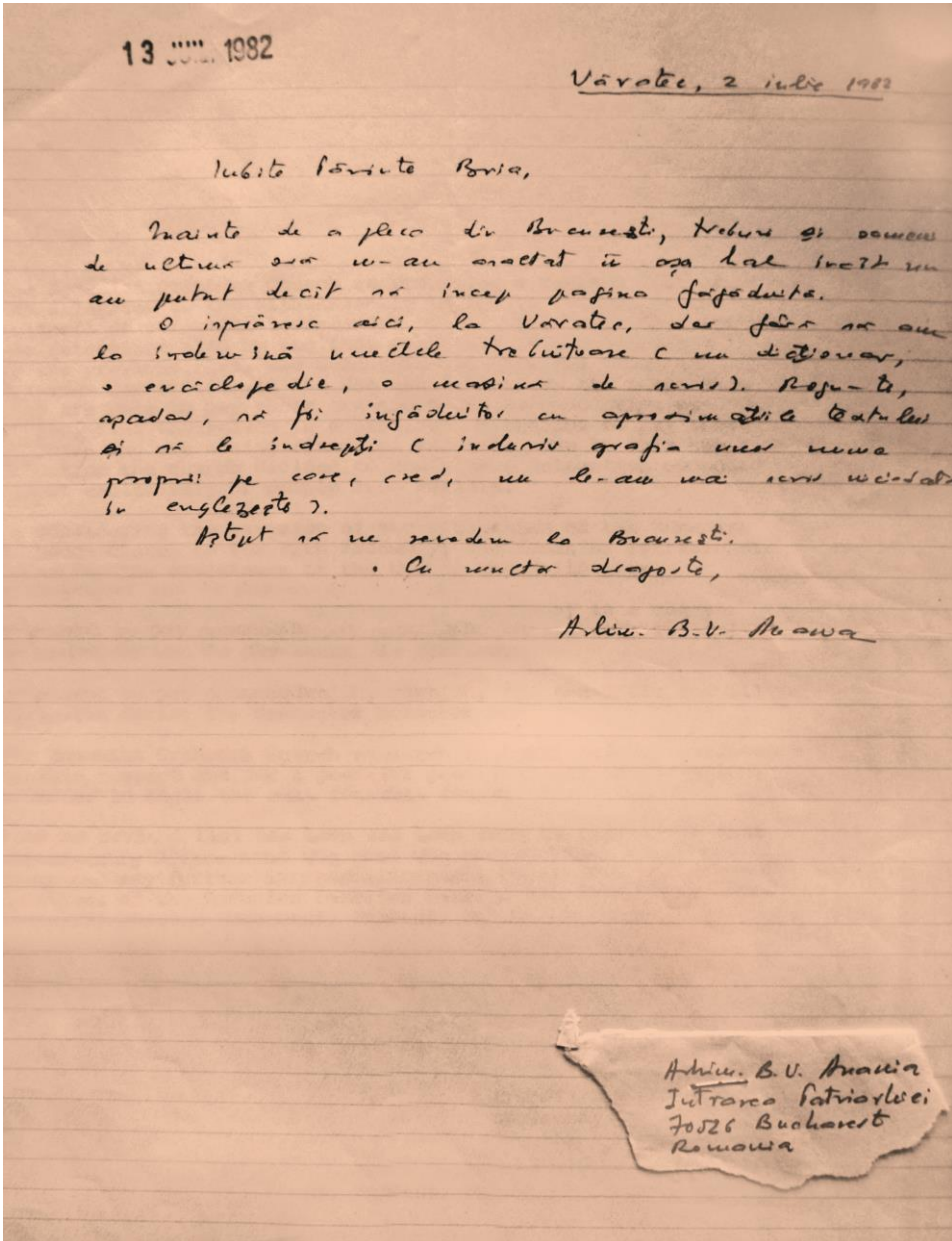 13 1982
Văratec, 2 iulie 1982
Iubite Părinte Bria,
Inainte de a pleca din Bucuresti, treburi și oameni
de ultima oră m-au asaltat în așa hal încît nu
am putut decît să incep pagina făgăduită.
O isprăvesc aici, la Văratec, dar fără să am
la îndemînă uneltele trebuitoare (un dicționar,
o enciclopedie, o mașină de scris). Rogu-te,
așadar, să fii ingăduitor cu aproximațiile textului
și să le indrepți (inclusiv grafia unor nume
proprii pe care, cred, nu le-am mai scris niciodată
in englezește).
Aștept să ne revedem la București.
Cu dragoste,
Arhim. B.V. Anania
Arhim. B.V. Anania
Intrarea Patriarhiei
70526 Bucharest
Romania